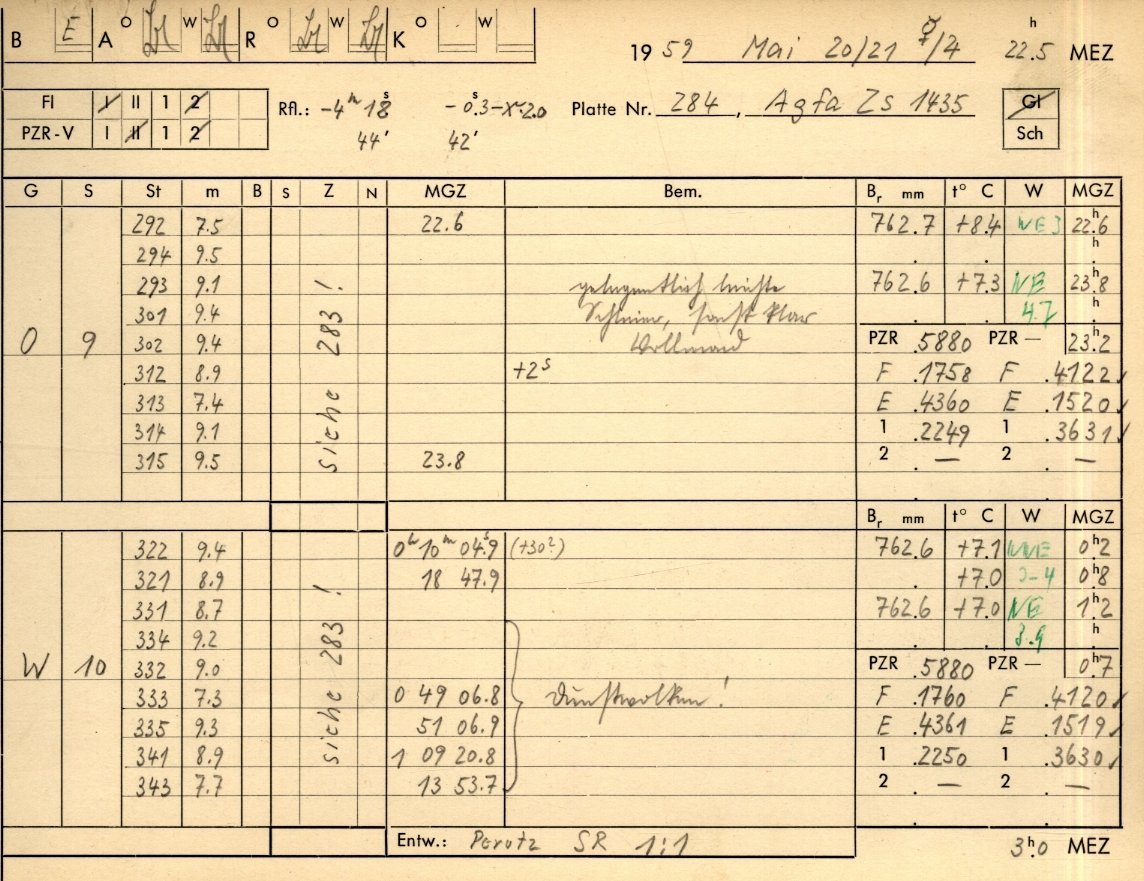 B E A O W R O W K O W
1959 Mai 20/21 ☿/♃ 22.5ʰ MEZ
FI I II 1 2 Rfl.: -4ʰ 18ˢ -0ˢ.3 Platte Nr. 284, Agfa Zs 1435 Gl
PZR-V I II 1 2 44' 42' Sch
G S St m B S Z N MGZ Bem. Bᵣ mm t° C W MGZ
292 7.5 22.6 762.7 +8.4 NE 3 22ʰ.6
294 9.5 . . ʰ.
293 9.1 gelegentlich leichte 762.6 +7.3 NE 23ʰ.8
301 9.4 Schleier, sonst klar 4.7 ʰ.
O 9 302 9.4 siehe 283! Vollmond PZR .5880 PZR — 23ʰ.2
312 8.9 +2ˢ F .1758 F .4122
313 7.4 E .4360 E .1520
314 9.1 1 .2249 1 .3631
315 9.5 23.8 2 . — 2 . —
Bᵣ mm t° C W MGZ
322 9.4 0ʰ 10ᵐ 04ˢ.9 (+30?) 762.6 +7.1 NNE 0ʰ.2
321 8.9 18 47.9 . +7.0 3-4 0ʰ.8
331 8.7 762.6 +7.0 NE 1ʰ.2
334 9.2 3.9 ʰ
W 10 332 9.0 siehe 283! PZR .5880 PZR — 0ʰ.7
333 7.3 0 49 06.8 Dunstwolken! F .1760 F .4120
335 9.3 51 06.9 E .4361 E .1519
341 8.9 1 09 20.8 1 .2250 1 .3630
343 7.7 13 53.7 2 . — 2 . —
Entw.: Perutz SR 1:1 3ʰ.0 MEZ